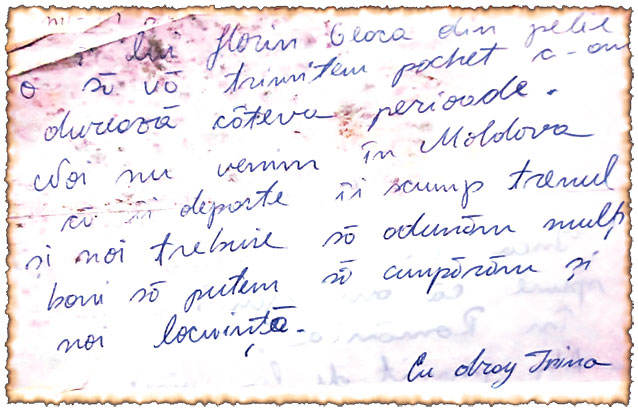 lui Florin Geoca din
o să vă trimitem pachet c-am
durează câteva perioade.
Noi nu venim în Moldova
că îi departe îi scump trenul
și noi trebuie să adunăm mulți
bani să putem să cumpărăm și
noi locuință.
Cu drag Irina